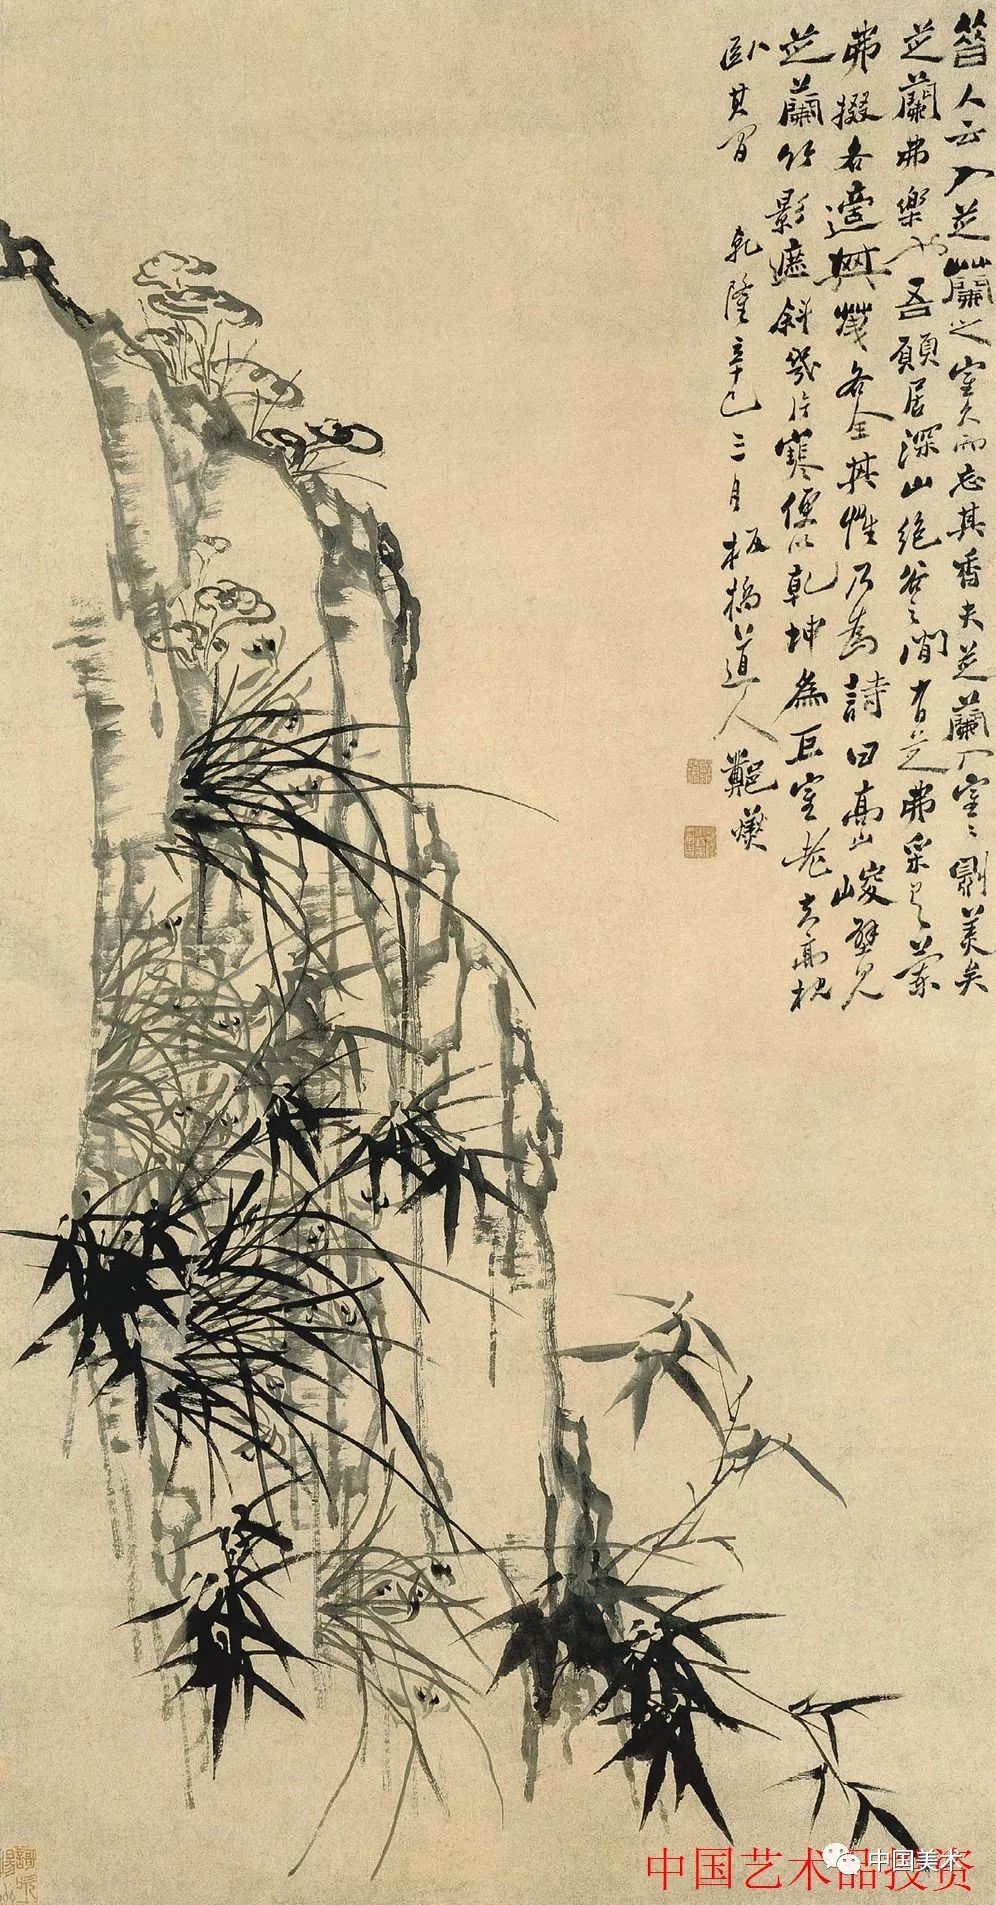 昔人云入芝蘭之室久而忘其香夫芝蘭入室室則美矣
芝蘭弗樂也吾願居深山絕谷之間有芝弗采有蘭
弗掇各適其天各全其性乃為詩曰高山峻壁見
芝蘭竹影遮斜幾片寒便以乾坤為巨室老夫高枕
臥其間 乾隆辛巳三月板橋道人鄭燮
中国艺术品投资
中国美术